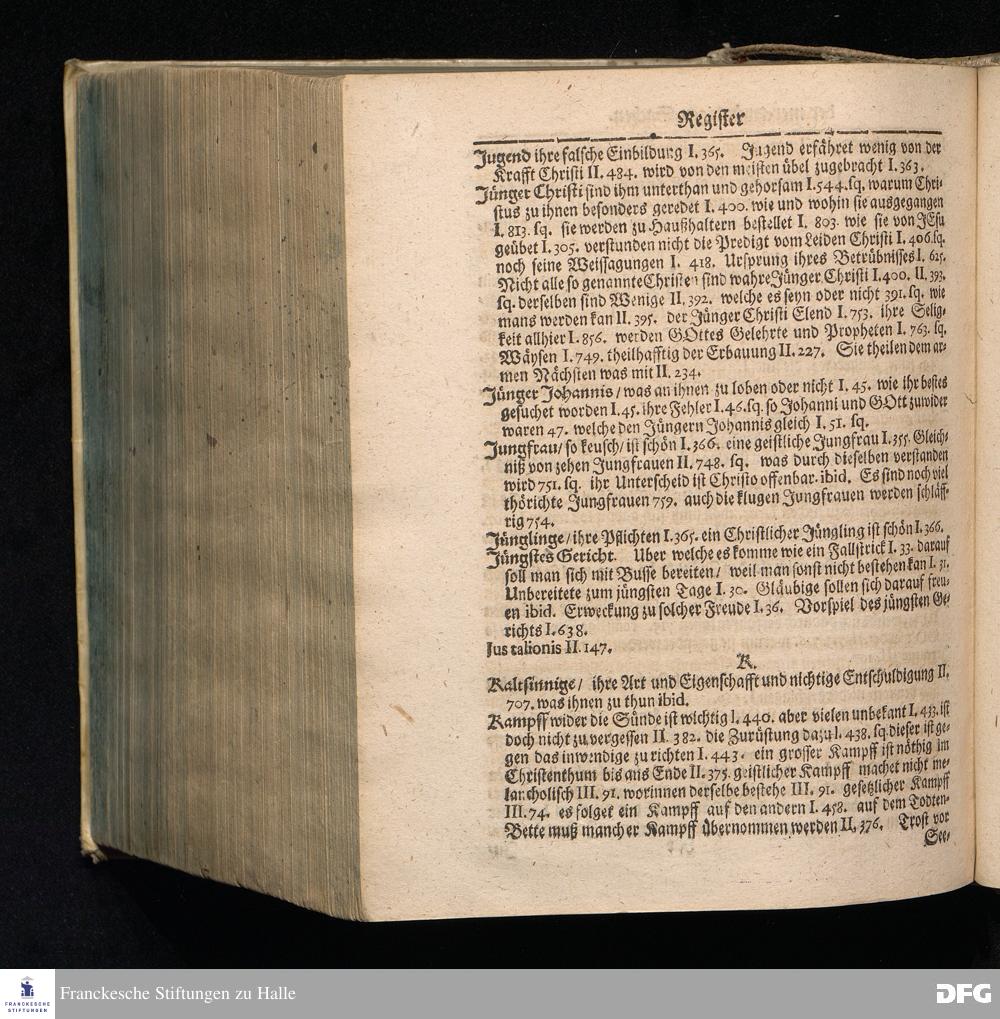 Register
Jugend ihre falsche Einbildung I. 365. Jugend erfähret wenig von der
Krafft Christi II. 484. wird von den meisten übel zugebracht I. 363.
Jünger Christi sind ihm unterthan und gehorsam I. 544. sq. warum Chri-
stus zu ihnen besonders geredet I. 400. wie und wohin sie ausgegangen
I. 813. sq. sie werden zu Haußhaltern bestellet I. 803. wie sie von JEsu
geübet I. 305. verstunden nicht die Predigt vom Leiden Christi I. 406. sq.
noch seine Weissagungen I. 418. Ursprung ihres Betrübnisses I. 625.
Nicht alle so genannte Christen sind wahre Jünger Christi I. 400. II. 393.
sq. derselben sind Wenige II. 392. welche es seyn oder nicht 391. sq. wie
mans werden kan II. 395. der Jünger Christi Elend I. 753. ihre Selig-
keit allhier I. 856. werden GOttes Gelehrte und Propheten I. 763. sq.
Wäysen I. 749. theilhafftig der Erbauung II. 227. Sie theilen dem ar-
men Nächsten was mit II. 234.
Jünger Johannis / was an ihnen zu loben oder nicht I. 45. wie ihr bestes
gesuchet worden I. 45. ihre Fehler I. 46. sq. so Johanni und GOtt zuwider
waren 47. welche den Jüngern Johannis gleich I. 51. sq.
Jungfrau / so keusch / ist schön I. 366. eine geistliche Jungfrau I. 355. Gleich-
niß von zehen Jungfrauen II. 748. sq. was durch dieselben verstanden
wird 751. sq. ihr Unterscheid ist Christo offenbar. ibid. Es sind noch viel
thörichte Jungfrauen 759. auch die klugen Jungfrauen werden schläff-
rig 754.
Jünglinge / ihre Pflichten I. 365. ein Christlicher Jüngling ist schön I. 366.
Jüngstes Gericht. Uber welche es komme wie ein Fallstrick I. 33. darauf
soll man sich mit Busse bereiten / weil man sonst nicht bestehen kan I. 31.
Unbereitete zum jüngsten Tage I. 30. Gläubige sollen sich darauf freu-
en ibid. Erweckung zu solcher Freude I. 36. Vorspiel des jüngsten Ge-
richts I. 638.
Jus talionis II. 147.
K.
Kaltsinnige / ihre Art und Eigenschafft und nichtige Entschuldigung II.
707. was ihnen zu thun ibid.
Kampff wider die Sünde ist wichtig I. 440. aber vielen unbekant I. 433. ist
doch nicht zu vergessen II. 382. die Zurüstung dazu I. 438. sq. dieser ist ge-
gen das inwendige zu richten I. 443. ein grosser Kampff ist nöthig im
Christenthum bis ans Ende II. 375. geistlicher Kampff machet nicht me-
lancholisch III. 91. worinnen derselbe bestehe III. 91. gesetzlicher Kampff
III. 74. es folget ein Kampff auf den andern I. 458. auf dem Todten-
Bette muß mancher Kampff übernommen werden II. 376. Trost vor
See-
FRANCKESCHE
STIFTUNGEN
Franckesche Stiftungen zu Halle
DFG